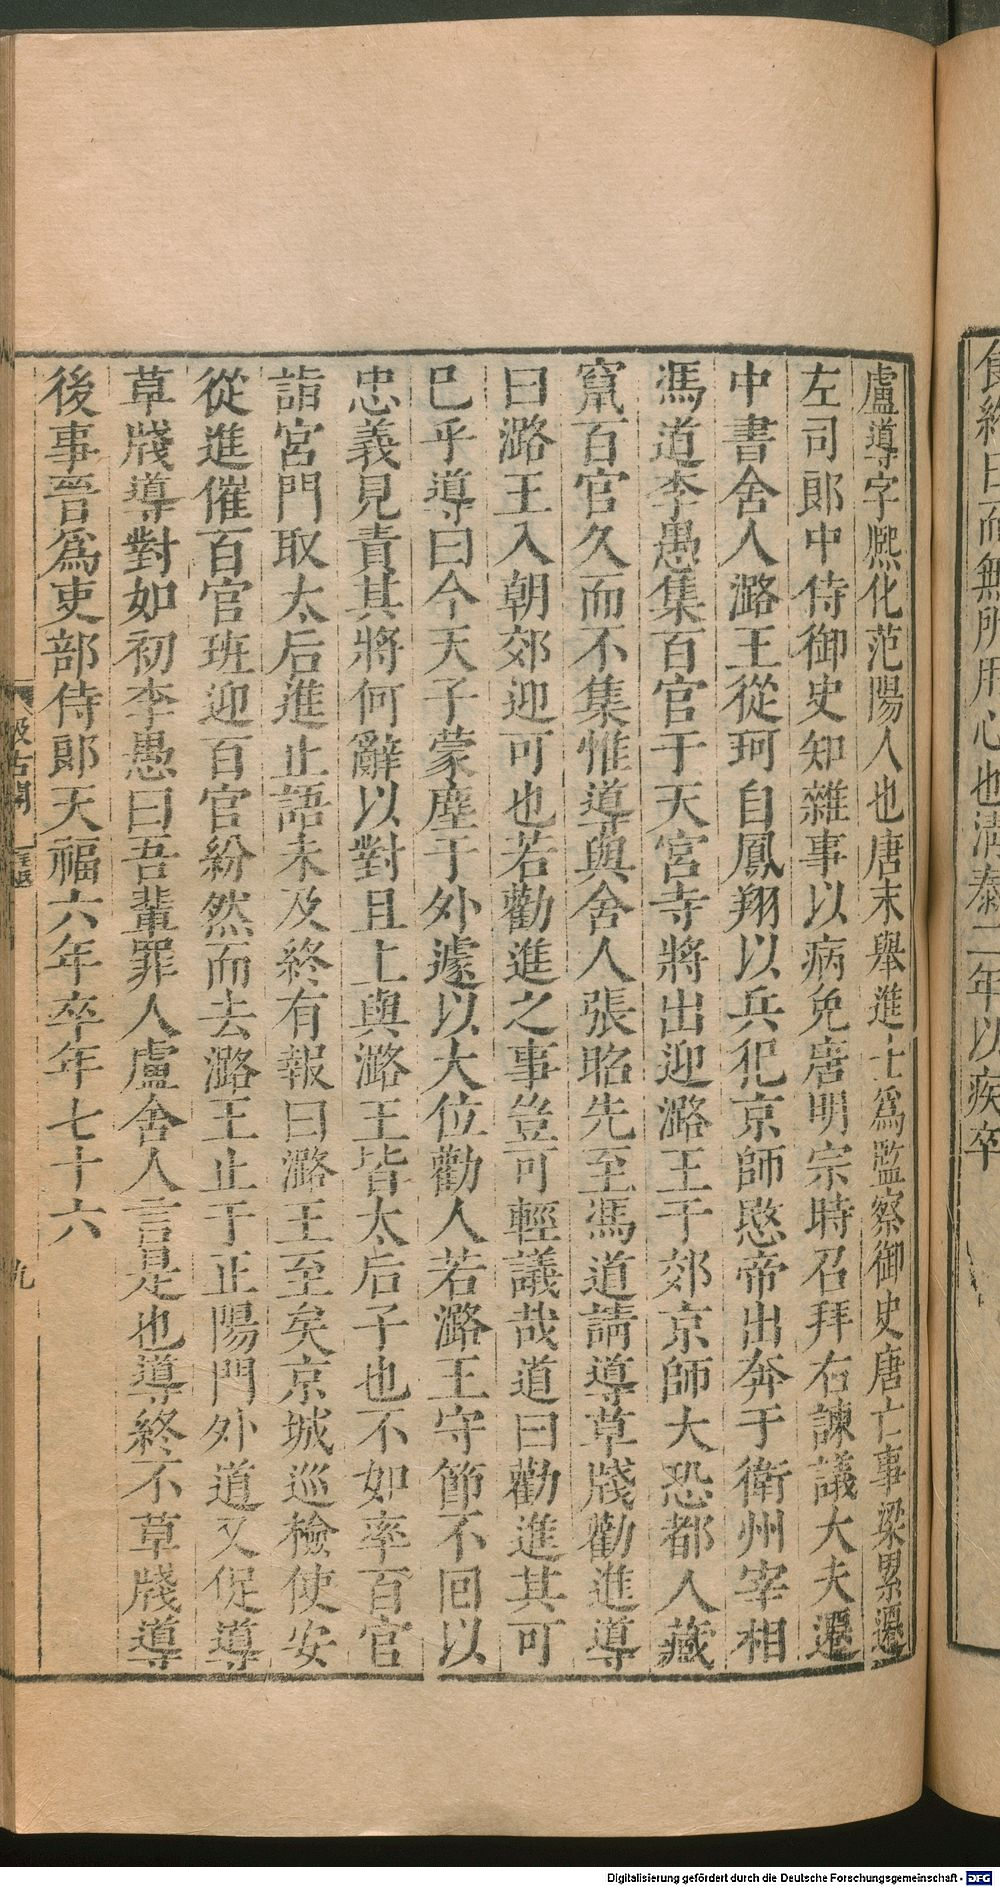 食終日而無所用心也清泰二年以疾卒
盧導字熈化范陽人也唐末舉進士爲監察御史唐亡事梁累遷
左司郎中侍御史知雜事以病免唐明宗時召拜右諫議大夫遷
中書舍人潞王從珂自鳳翔以兵犯京師愍帝出奔于衛州宰相
馮道李愚集百官于天宮寺將出迎潞王于郊京師大恐都人藏
竄百官久而不集惟導與舍人張昭先至馮道請導草牋勸進導
曰潞王入朝郊迎可也若勸進之事豈可輕議哉道曰勸進其可
巳乎導曰今天子蒙塵于外遽以大位勸人若潞王守節不回以
忠義見責其將何辭以對且上與潞王皆太后子也不如率百官
詣宮門取太后進止語未及終有報曰潞王至矣京城巡檢使安
從進催百官班迎百官紛然而去潞王止于正陽門外道又促導
草牋導對如初李愚曰吾輩罪人盧舍人言是也導終不草牋導
後事晉爲吏部侍郎天福六年卒年七十六
汲古閣
九
Digitalisierung gefördert durch die Deutsche Forschungsgemeinschaft - DFG